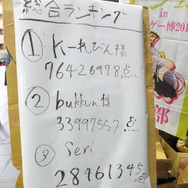 総合ランキング
① くーれびん様
76426978点
② bukkun様
33997557点
③ Seri
28961345点
in
ゲー博201
部